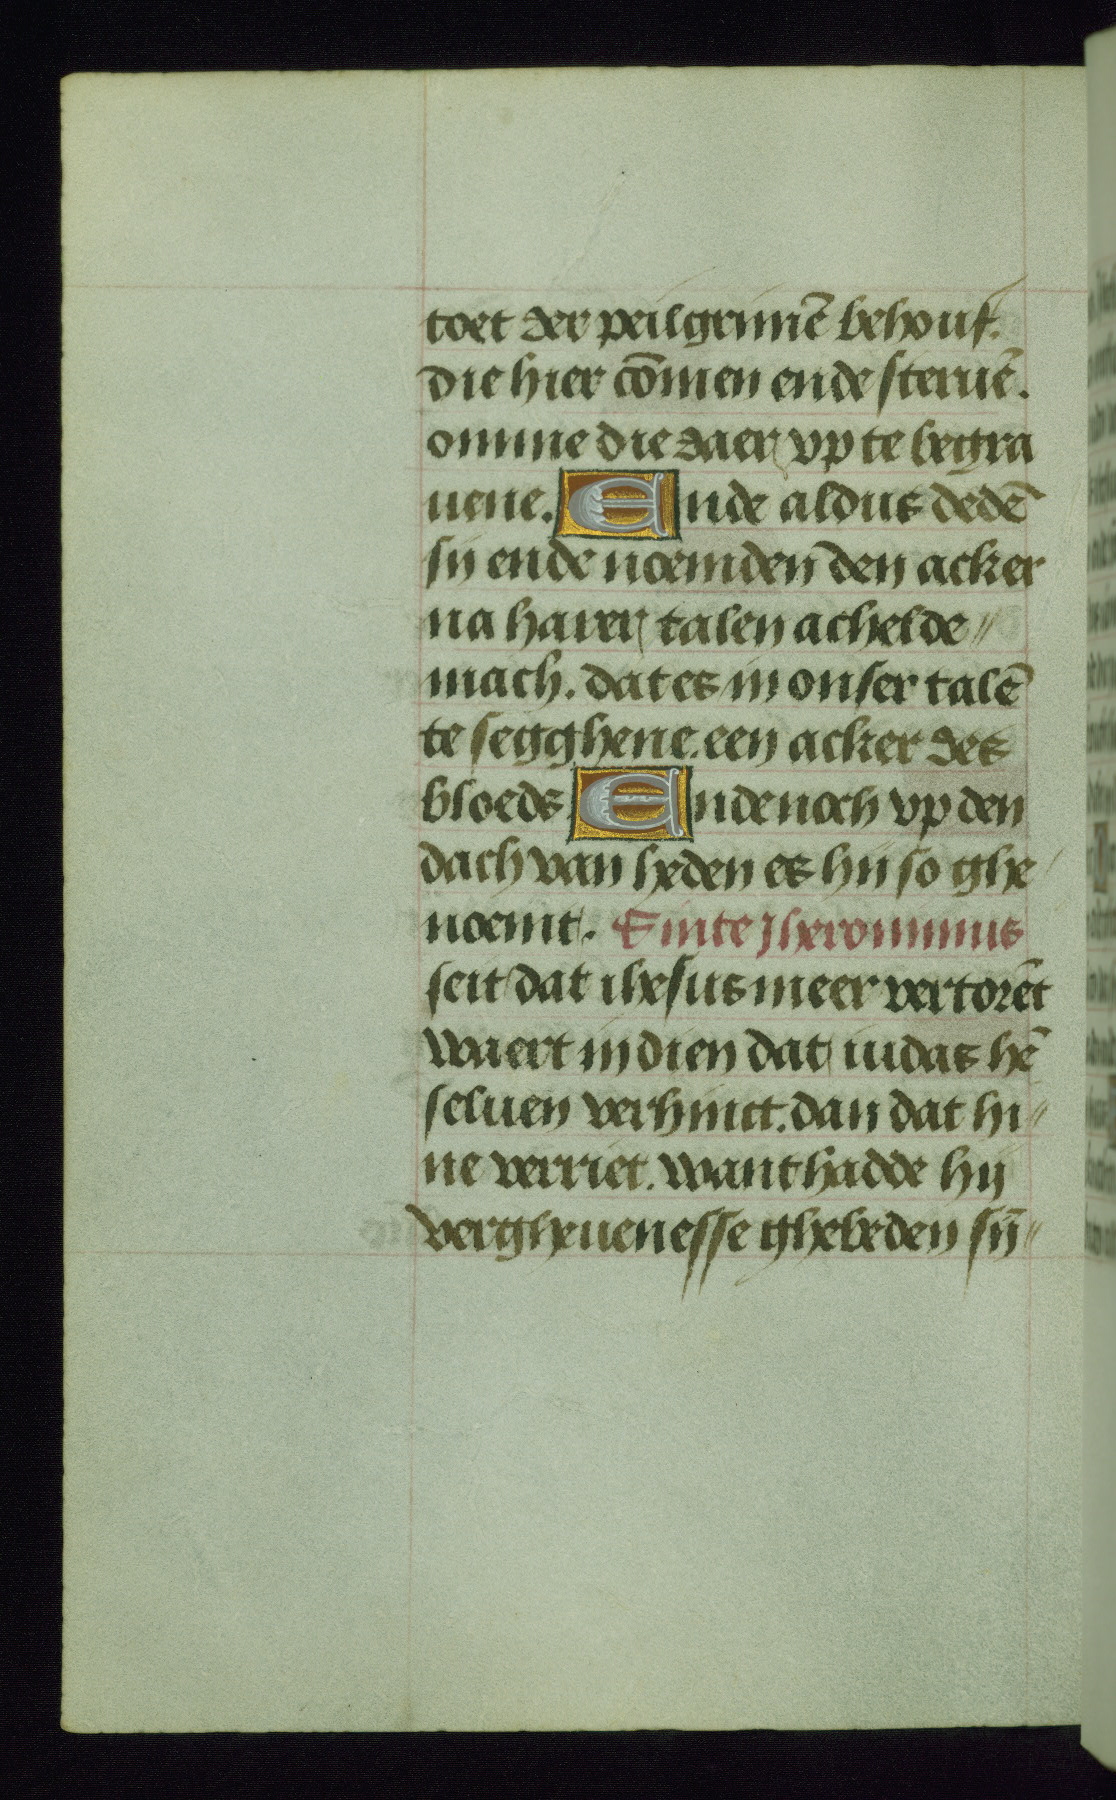 toet der peilgrimē behouf.
die hier cōmen ende steruē.
omme die daer vp te begra
uene. Ende aldus dedē
sij ende noemden den acker
na harer talen achelde〃
mach. dat es in onser talē
te segghene. een acker des
bloeds Ende noch vp den
dach van heden es hij so ghe
noemt. Sinte Jheronimus
seit dat ihesus meer vertorēt
waert in dien dat iudas hē
seluen verhinct. dan dat hi〃
ne verriet. want hadde hij
vergheuenesse ghebeden sij̄〃